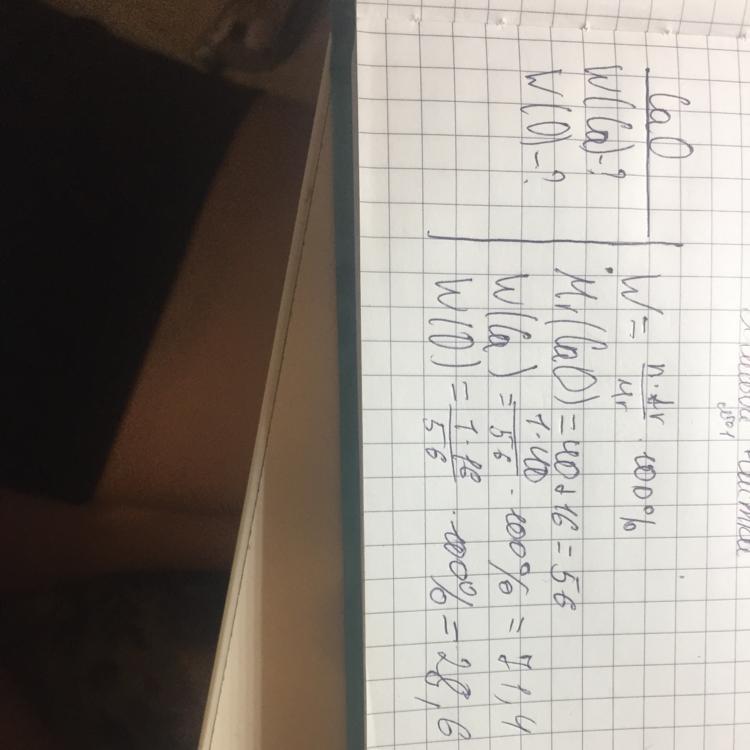 CaO
W(Ca)-?
W(O)-?
W = n·Ar / Mr · 100%
Mr(CaO) = 40+16 = 56
W(Ca) = 1·40 / 56 · 100% = 71,4
W(O) = 1·16 / 56 · 100% = 28,6